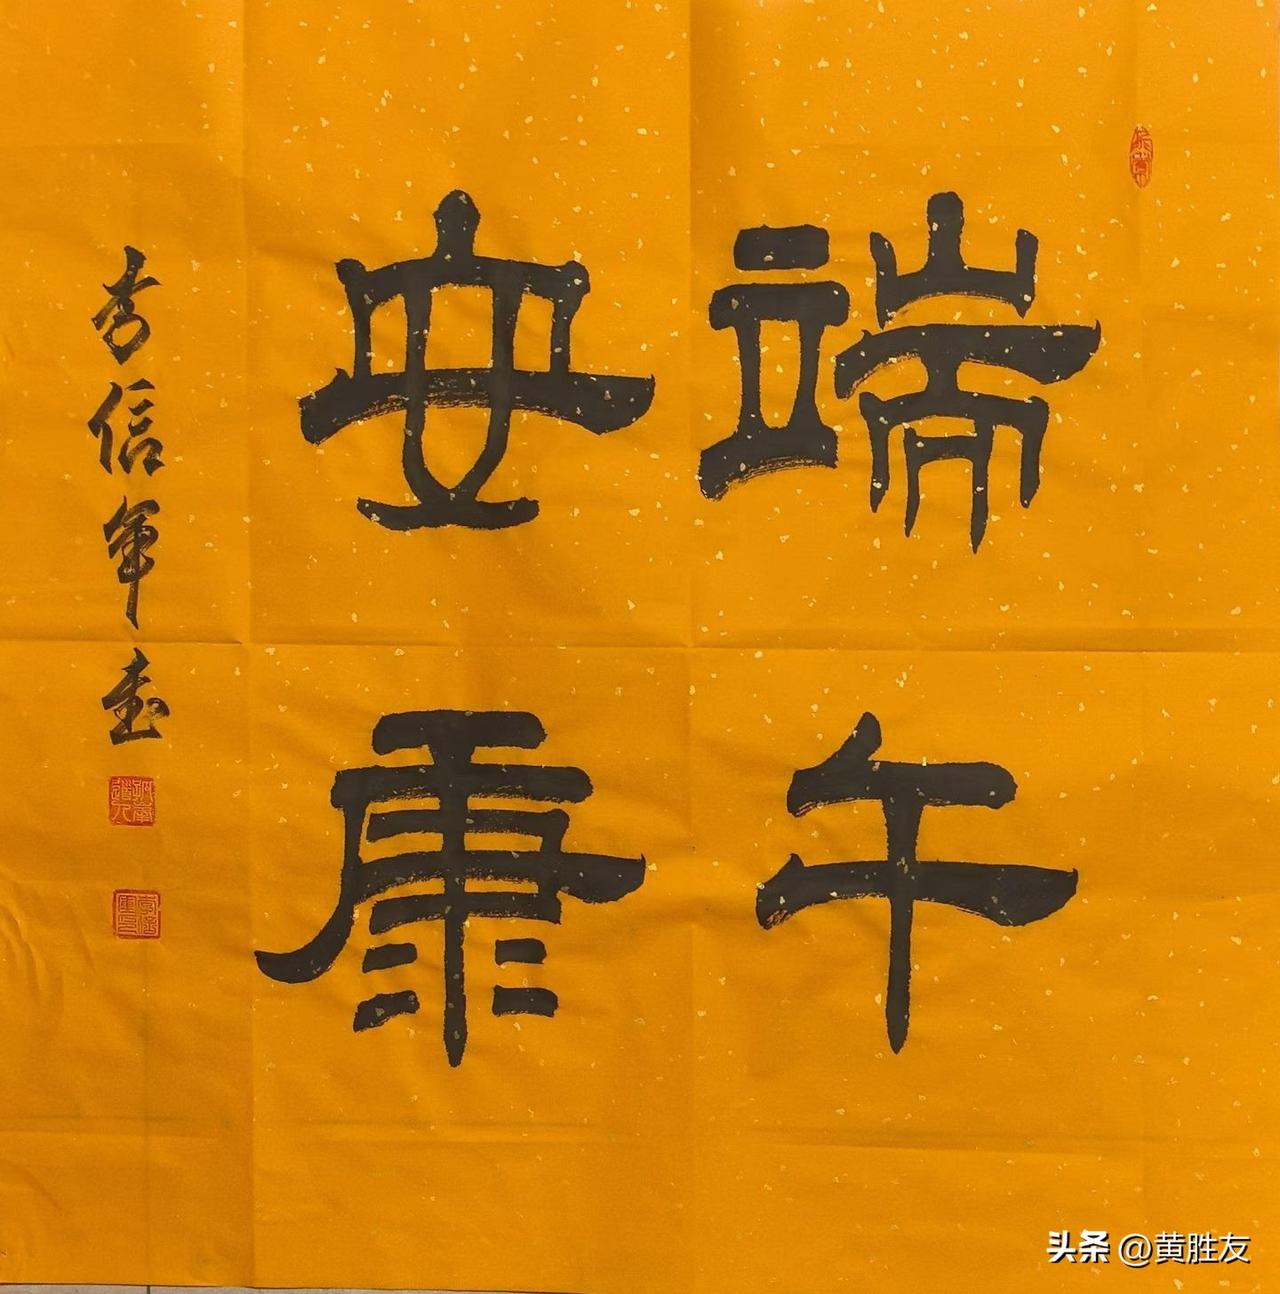 端午
安康
李信军书
头条 @黄胜友